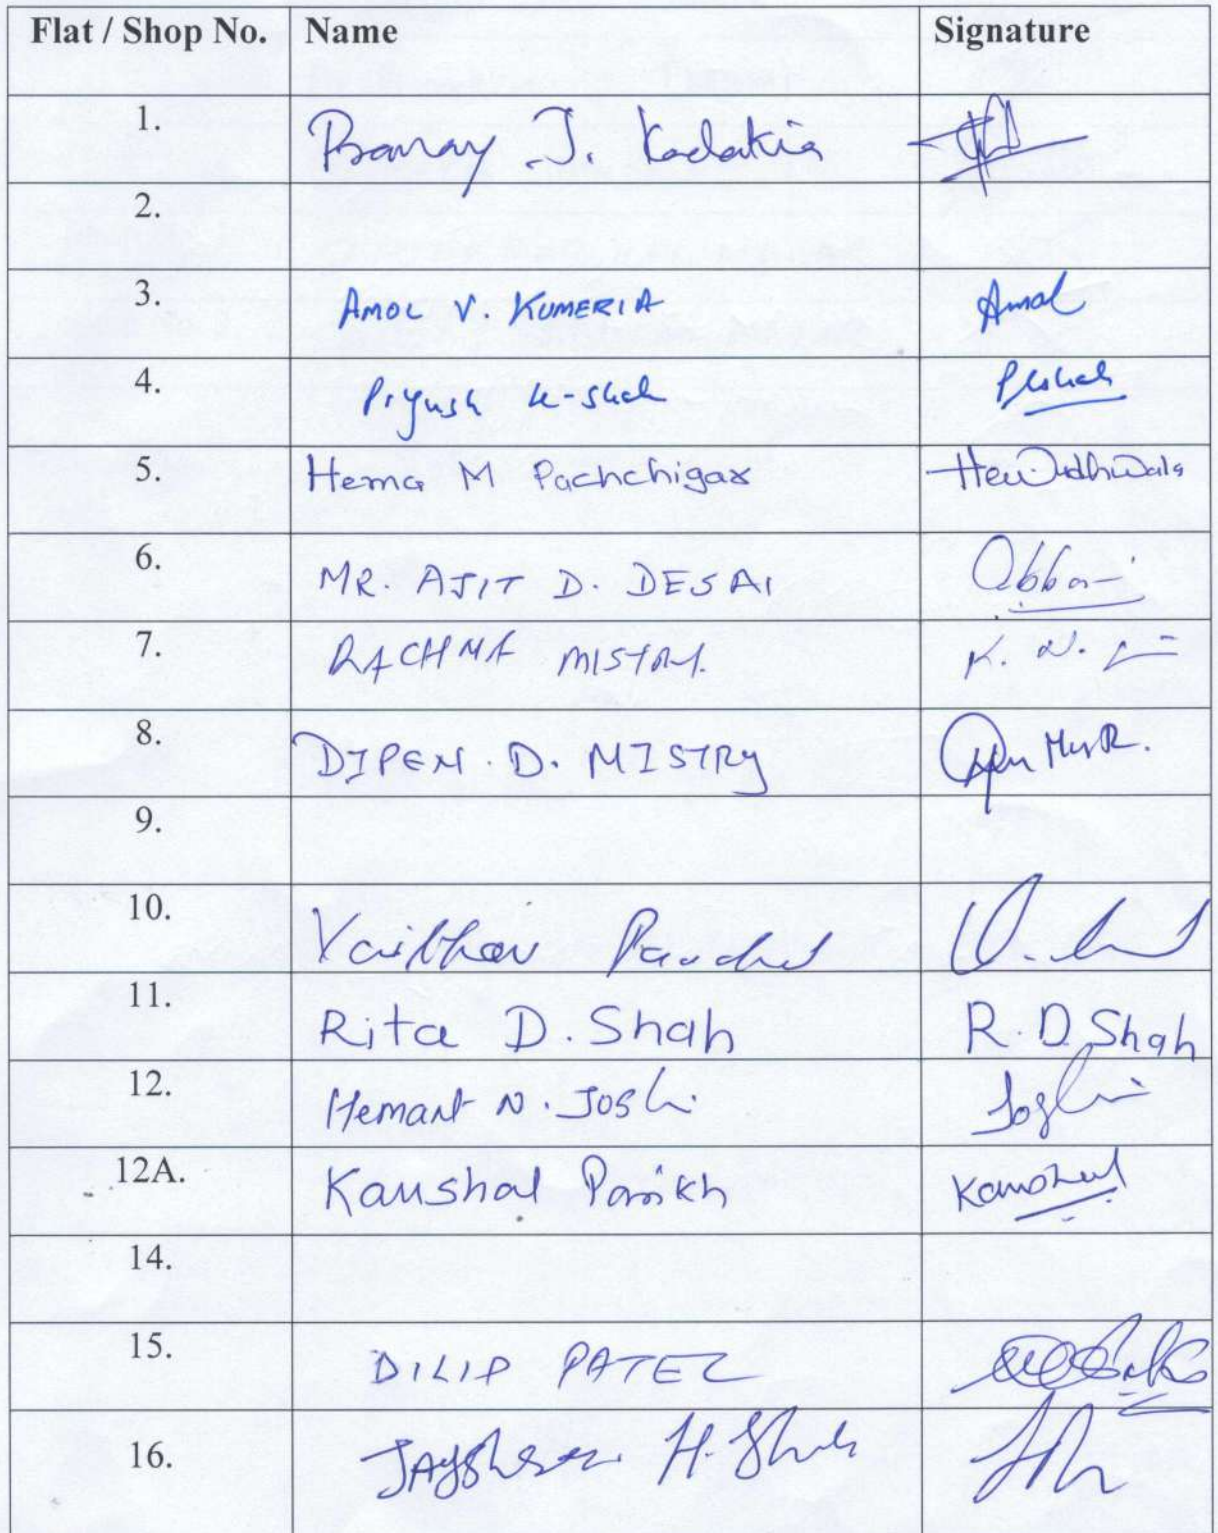 Flat / Shop No. Name Signature
1. J. Kadakia
2.
3. AMOL V. KUMERIA Amol
4. Piyush K-Shah PKShah
5. Hema M Pachchigar
6. MR. AJIT D. DESAI
7. RACHNA MISTRY. K. N.
8. DIPEN. D. MISTRY
9.
10. Vaibhav
11. Rita D. Shah R. D Shah
12. Hemant N. Joshi Joshi
12A. Kaushal Parikh Kaushal
14.
15. DILIP PATEL
16. H. Shah